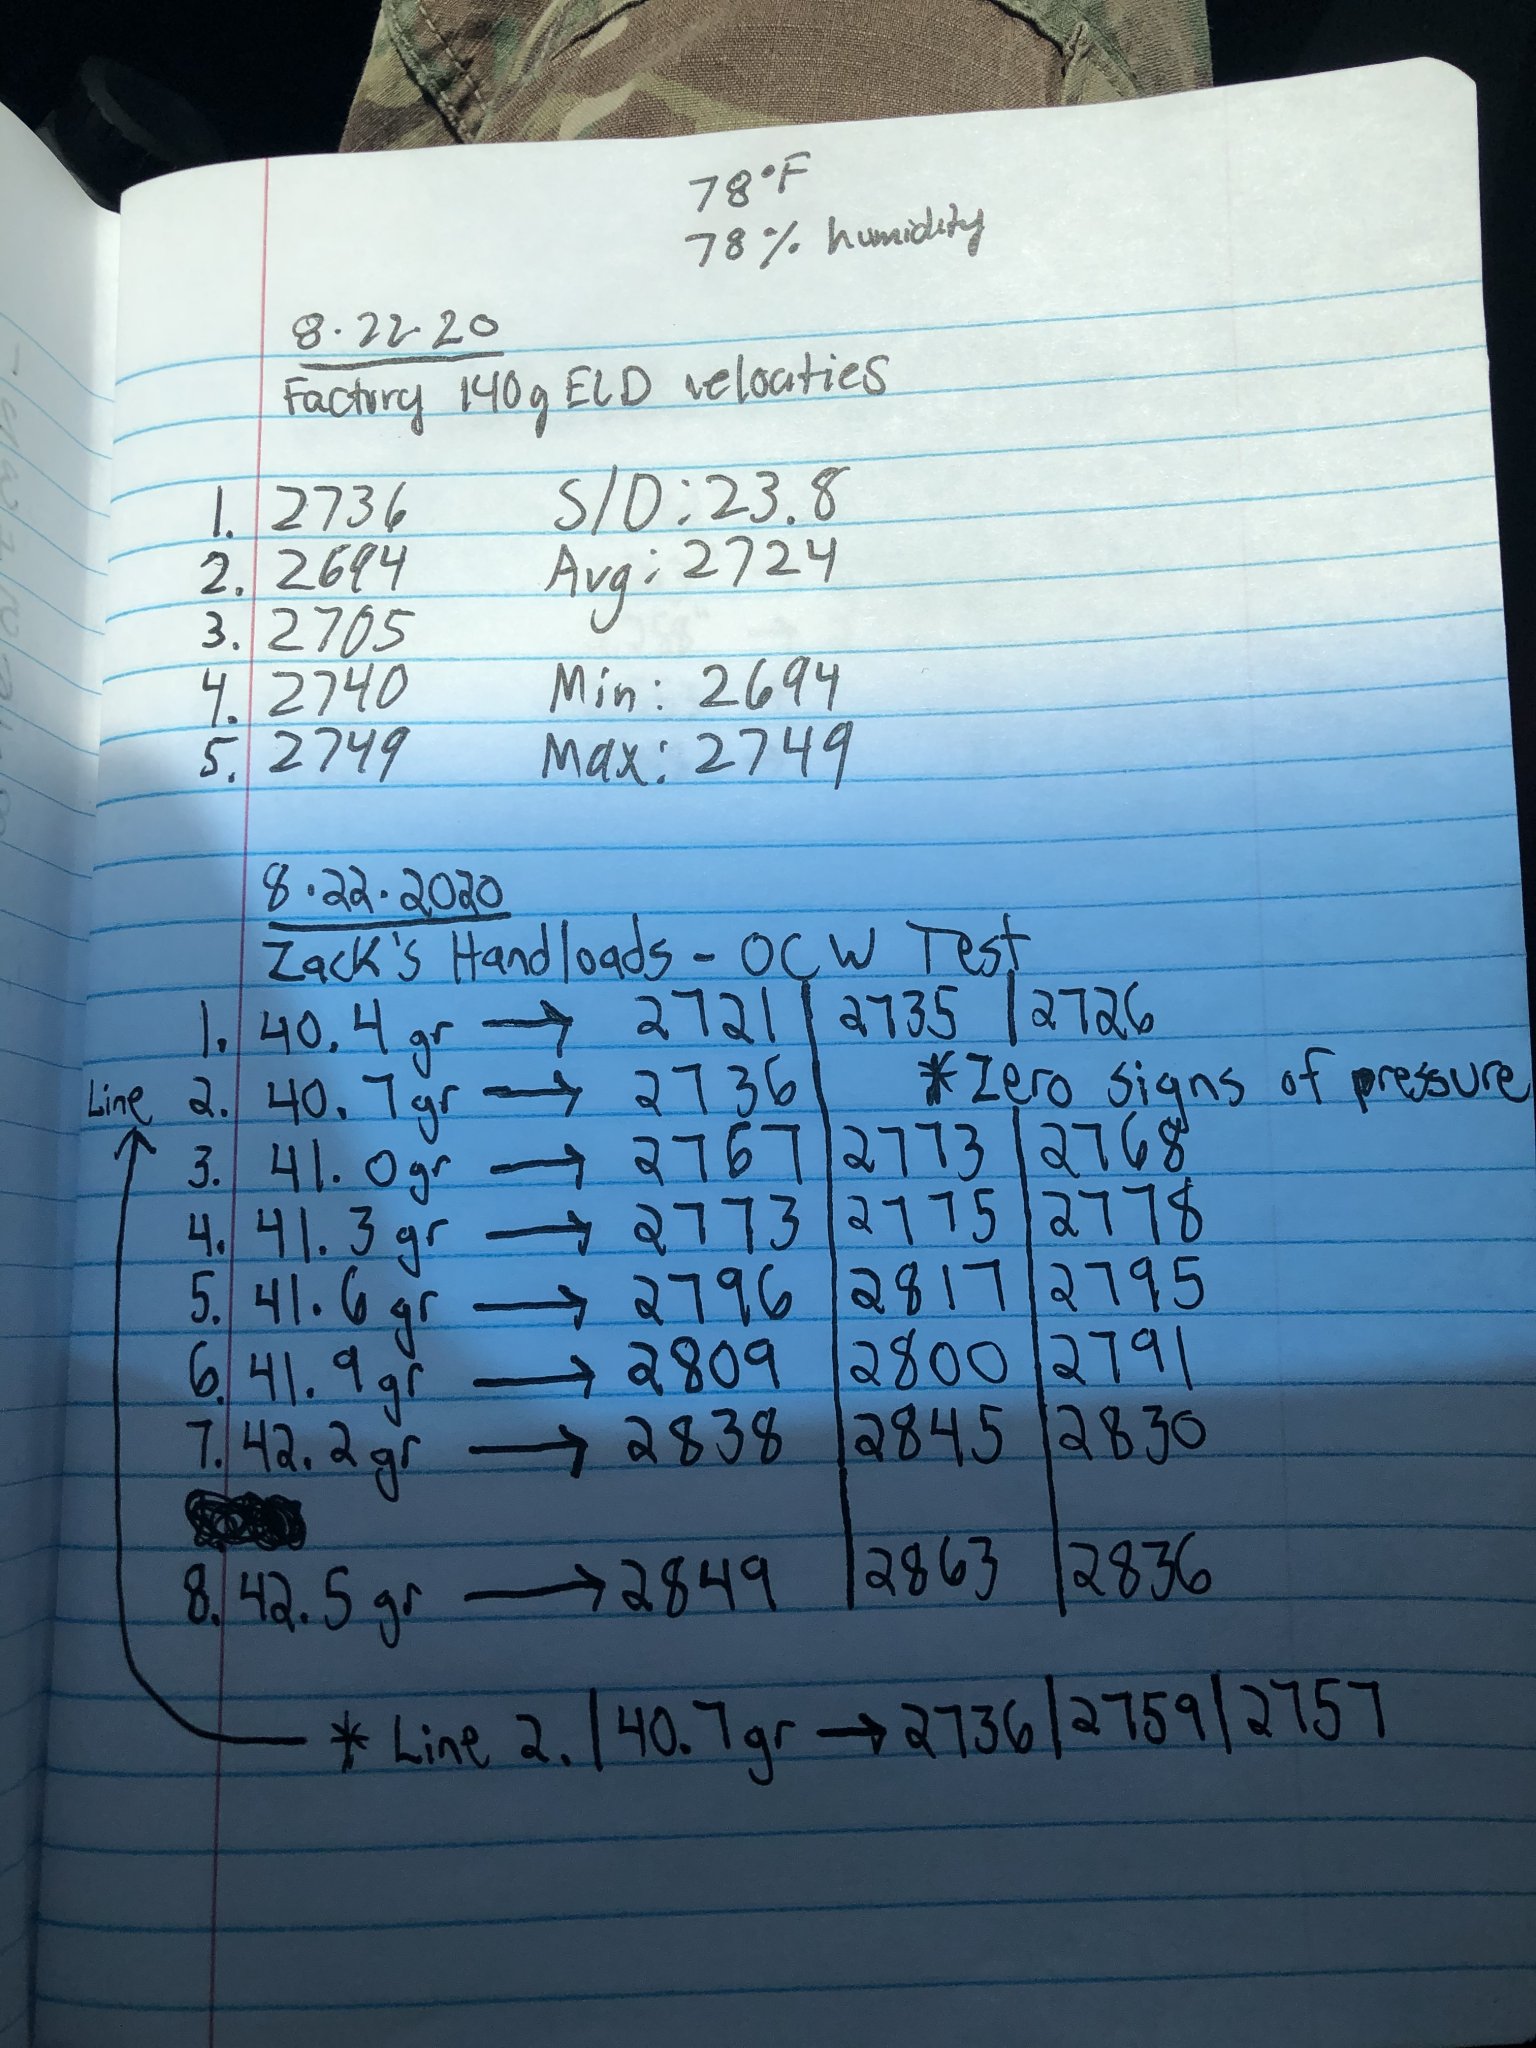 78°F
78% humidity
8.22.20
Factory 140g ELD velocities
1. 2736 S/D: 23.8
2. 2694 Avg: 2724
3. 2705
4. 2740 Min: 2694
5. 2749 Max: 2749
8.22.2020
Zack's Handloads - OCW Test
1. 40.4 gr → 2721 | 2735 | 2726
Line 2. 40.7 gr → 2736 | *Zero signs of pressure
3. 41.0 gr → 2767 | 2773 | 2768
4. 41.3 gr → 2773 | 2775 | 2778
5. 41.6 gr → 2796 | 2817 | 2795
6. 41.9 gr → 2809 | 2800 | 2791
7. 42.2 gr → 2838 | 2845 | 2830
8. 42.5 gr → 2849 | 2863 | 2836
* Line 2. | 40.7 gr → 2736 | 2759 | 2757